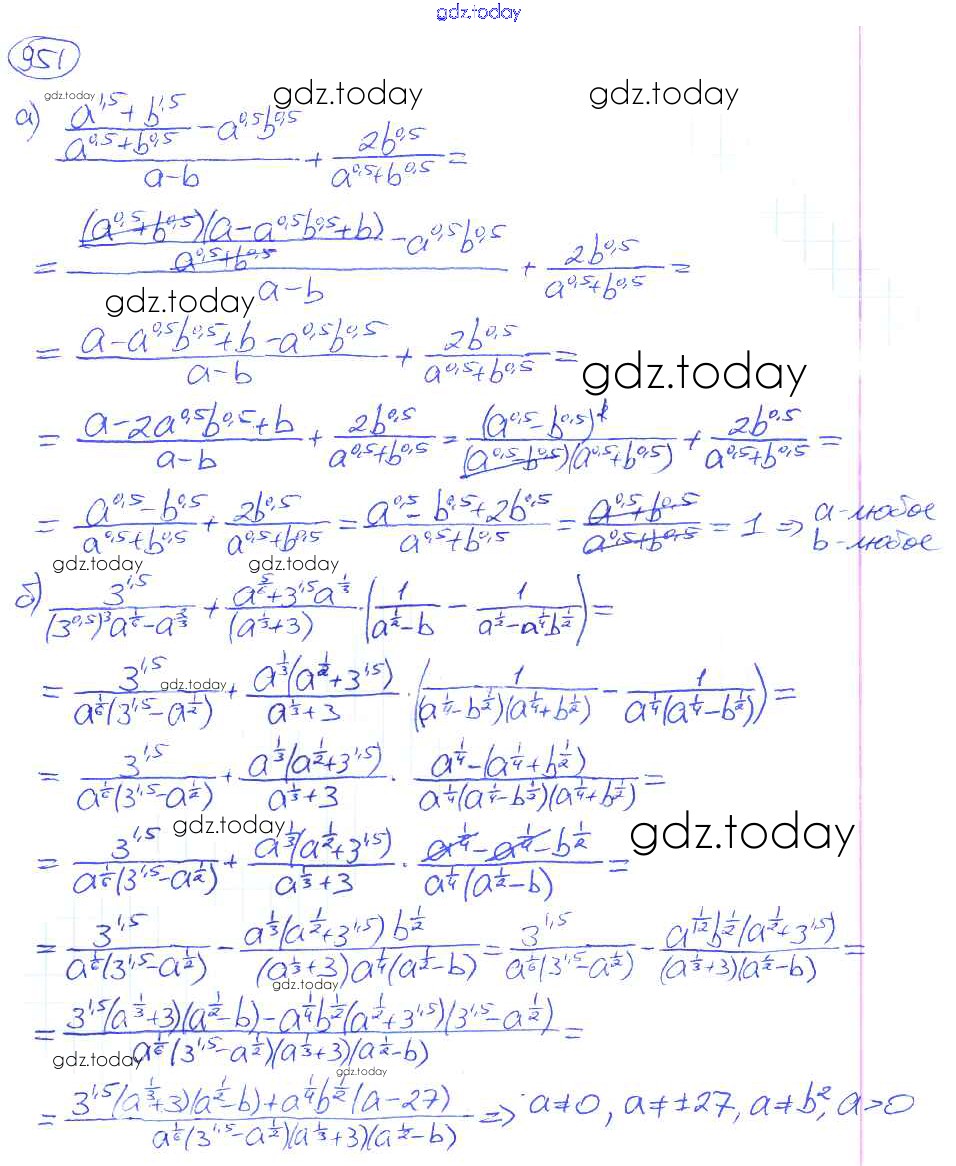 gdz.today
951
gdz.today gdz.today gdz.today
а) (a^1,5 + b^1,5)/(a^0,5 + b^0,5) - a^0,5 b^0,5 / (a-b) + 2b^0,5/(a^0,5 + b^0,5) =
= ((a^0,5 + b^0,5)(a - a^0,5 b^0,5 + b)/(a^0,5 + b^0,5) - a^0,5 b^0,5)/(a-b) + 2b^0,5/(a^0,5 + b^0,5) =
gdz.today
= (a - a^0,5 b^0,5 + b - a^0,5 b^0,5)/(a-b) + 2b^0,5/(a^0,5 + b^0,5) =
gdz.today
= (a - 2a^0,5 b^0,5 + b)/(a-b) + 2b^0,5/(a^0,5 + b^0,5) = (a^0,5 - b^0,5)^2/((a^0,5 - b^0,5)(a^0,5 + b^0,5)) + 2b^0,5/(a^0,5 + b^0,5) =
= (a^0,5 - b^0,5)/(a^0,5 + b^0,5) + 2b^0,5/(a^0,5 + b^0,5) = (a^0,5 - b^0,5 + 2b^0,5)/(a^0,5 + b^0,5) = (a^0,5 + b^0,5)/(a^0,5 + b^0,5) = 1 ⇒ a-любое
b-любое
gdz.today gdz.today gdz.today
б) 3^1,5/((3^0,5)^3 a^1/6 - a^2/3) + (a^5/6 + 3^1,5 a^1/3)/(a^1/3 + 3) · (1/(a^1/2 - b) - 1/(a^1/2 - a^1/4 b^1/2)) =
= 3^1,5/(a^1/6(3^1,5 - a^1/2)) + a^1/3(a^1/2 + 3^1,5)/(a^1/3 + 3) · (1/((a^1/4 - b^1/2)(a^1/4 + b^1/2)) - 1/(a^1/4(a^1/4 - b^1/2))) =
gdz.today
= 3^1,5/(a^1/6(3^1,5 - a^1/2)) + a^1/3(a^1/2 + 3^1,5)/(a^1/3 + 3) · (a^1/4 - (a^1/4 + b^1/2))/(a^1/4(a^1/4 - b^1/2)(a^1/4 + b^1/2)) =
gdz.today gdz.today
= 3^1,5/(a^1/6(3^1,5 - a^1/2)) + a^1/3(a^1/2 + 3^1,5)/(a^1/3 + 3) · (a^1/4 - a^1/4 - b^1/2)/(a^1/4(a^1/2 - b)) =
= 3^1,5/(a^1/6(3^1,5 - a^1/2)) - a^1/3(a^1/2 + 3^1,5)b^1/2/((a^1/3 + 3)a^1/4(a^1/2 - b)) = 3^1,5/(a^1/6(3^1,5 - a^1/2)) - a^1/12 b^1/2(a^1/2 + 3^1,5)/((a^1/3 + 3)(a^1/2 - b)) =
gdz.today
= (3^1,5(a^1/3 + 3)(a^1/2 - b) - a^1/4 b^1/2(a^1/2 + 3^1,5)(3^1,5 - a^1/2))/(a^1/6(3^1,5 - a^1/2)(a^1/3 + 3)(a^1/2 - b)) =
gdz.today gdz.today
= (3^1,5(a^1/3 + 3)(a^1/2 - b) + a^1/4 b^1/2(a - 27))/(a^1/6(3^1,5 - a^1/2)(a^1/3 + 3)(a^1/2 - b)) ⇒ a≠0, a≠±27, a≠b^2, a>0